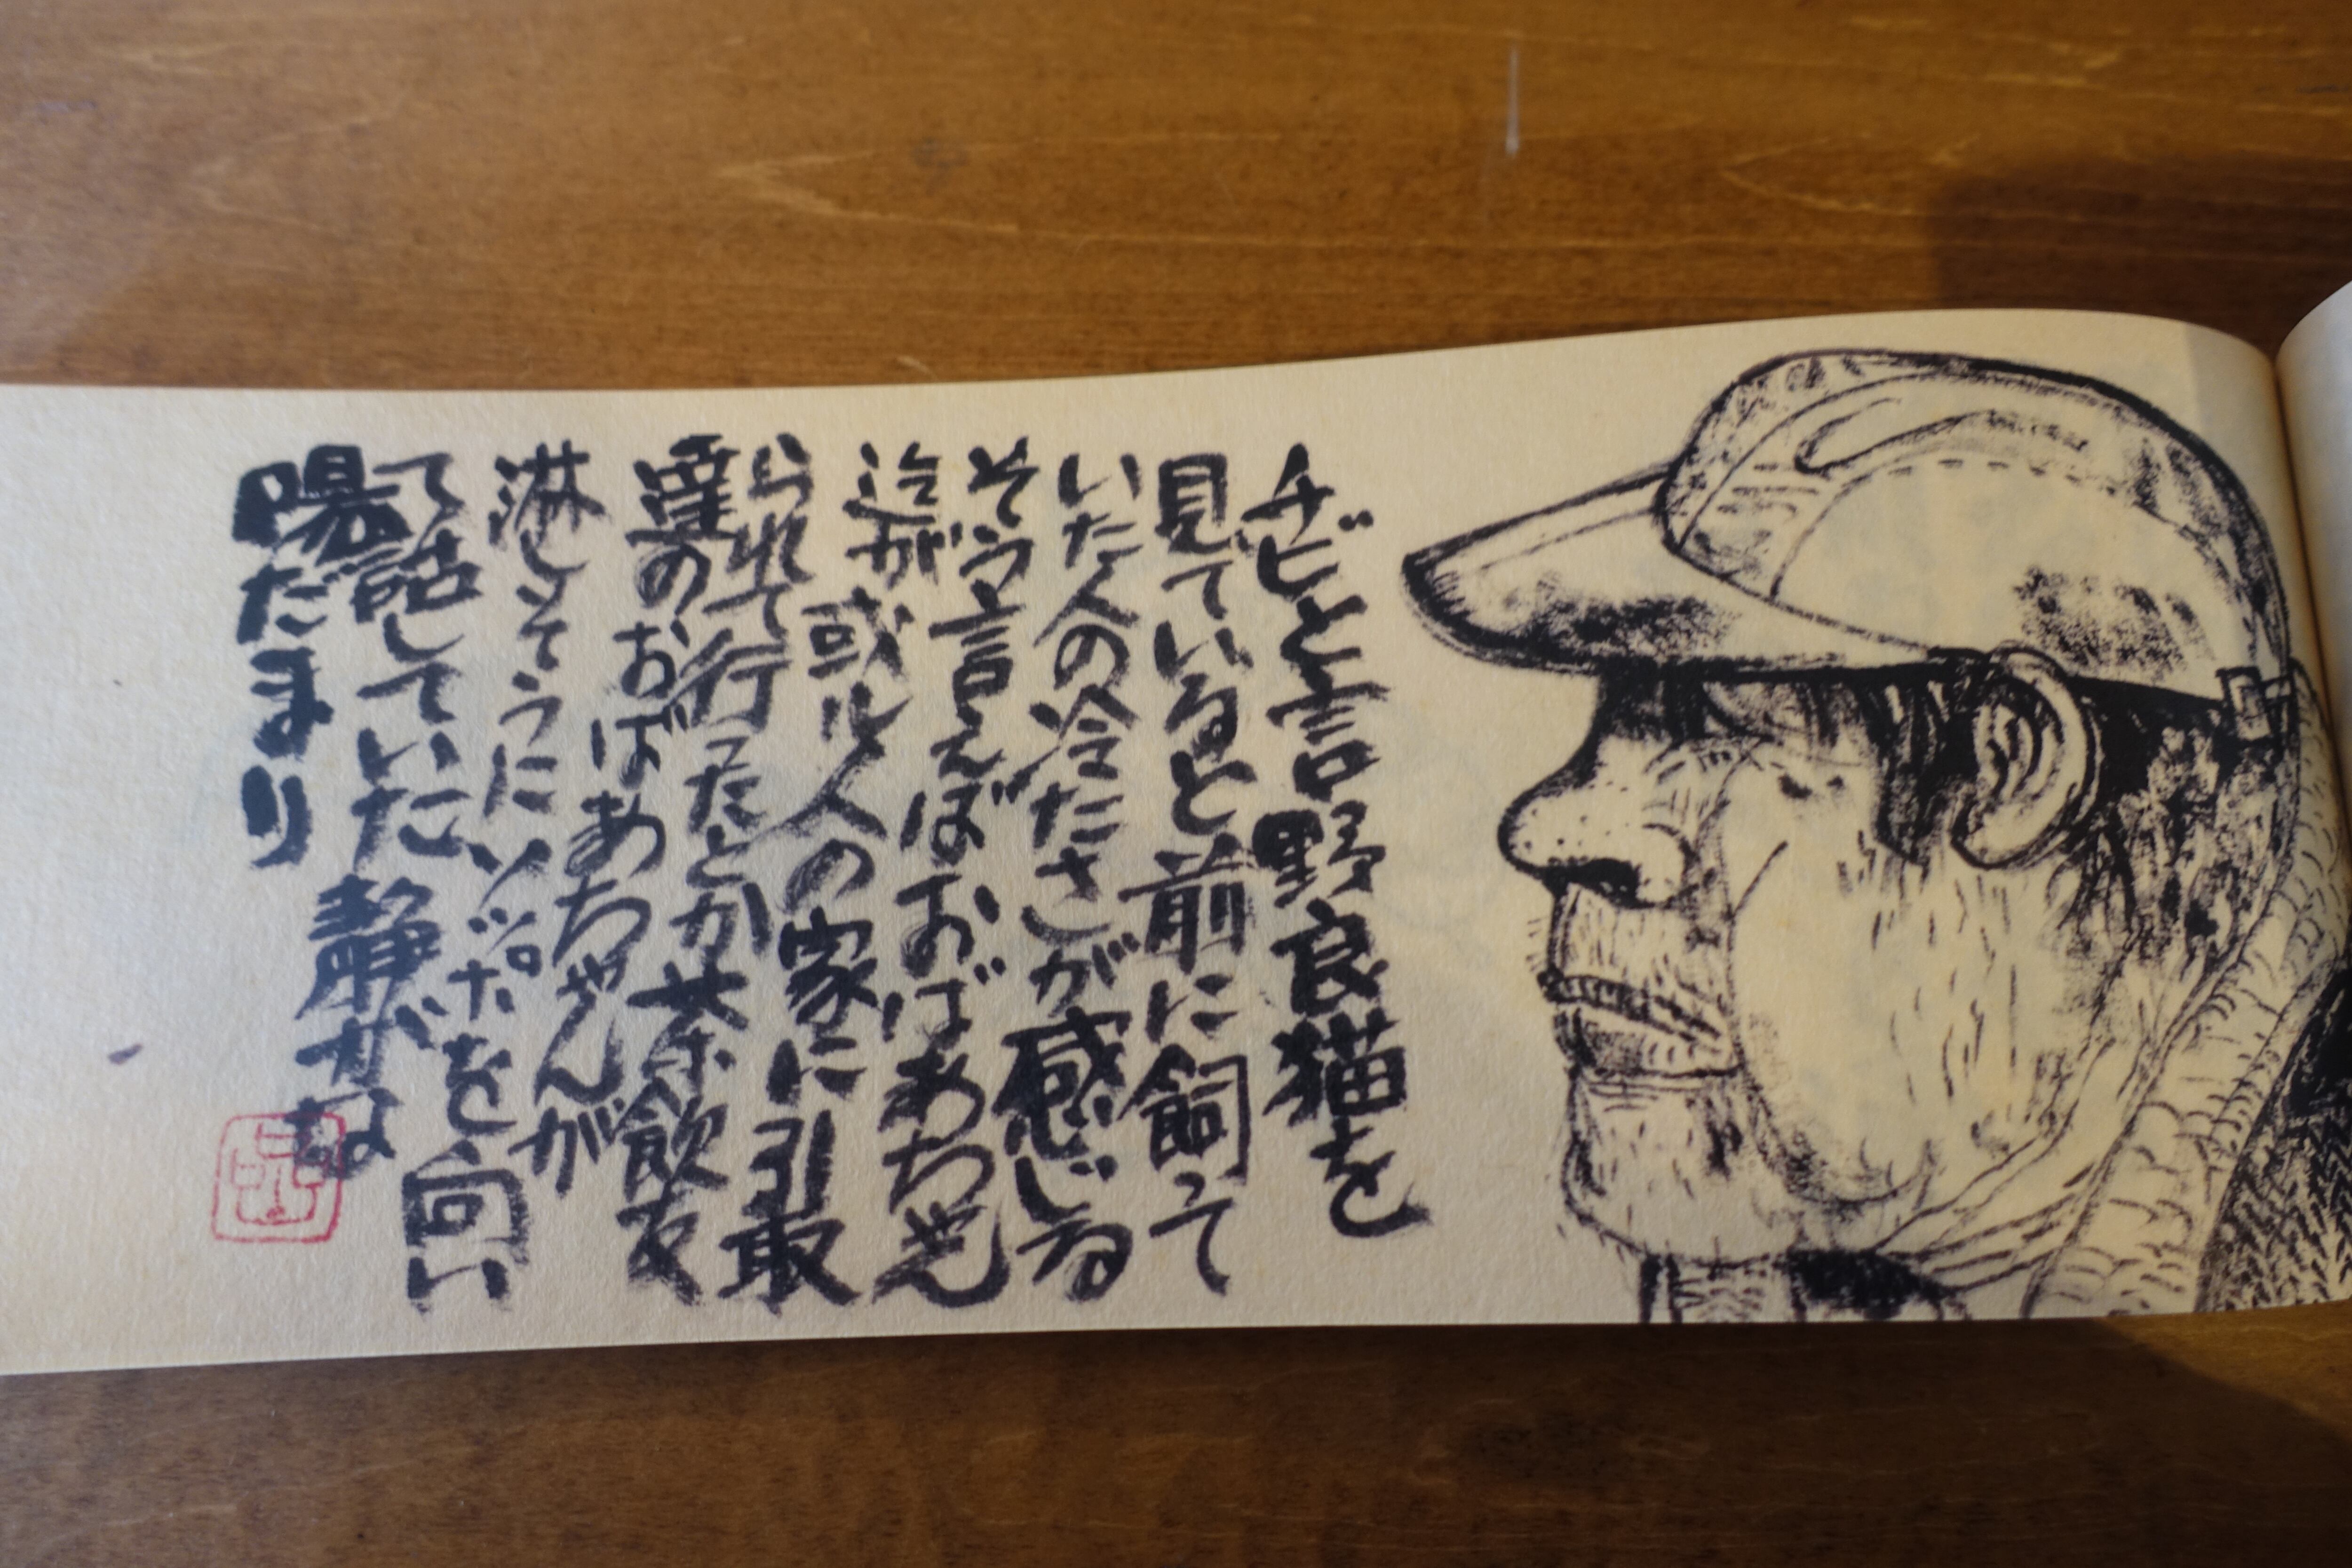 チビと言野良猫を
見ていると前に飼って
いた人の冷たさが感じる
そう言えばおばあちゃん
迄が或ル人の家に引取
られて行ったとか茶飲友
達のおばあちゃんが
淋しそうにソッポを向い
て話していた静かな
陽だまり